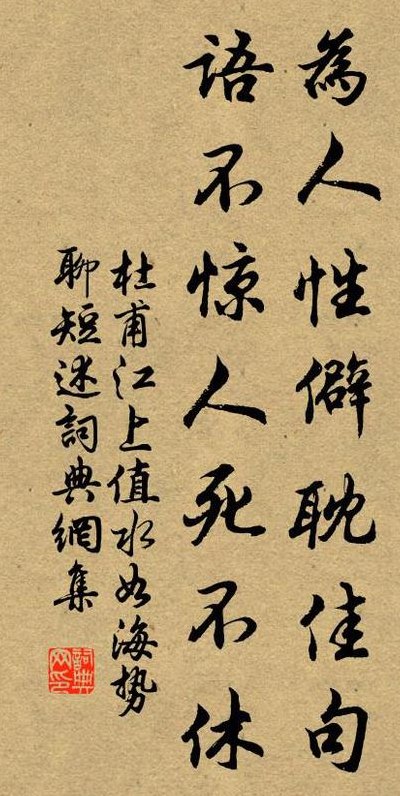 為人性僻耽佳句
語不惊人死不休
杜甫江上值水如海势
聊短述詞典網集
詞典网印